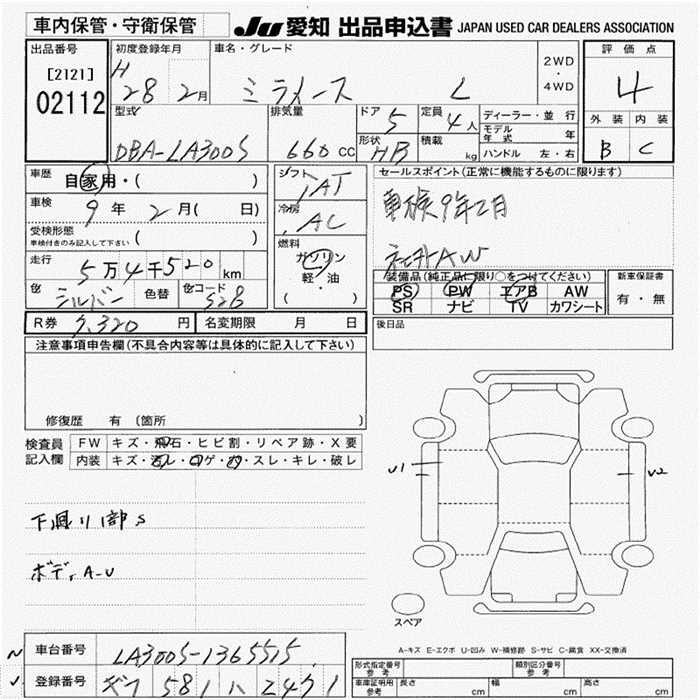 車内保管・守衛保管
JU 愛知 出品申込書 JAPAN USED CAR DEALERS ASSOCIATION
出品番号
[2121]
02112
初度登録年月
H
28 2月
車名・グレード
ミライース L
2WD
・
4WD
評価点
4
外装 内装
B C
型式
DBA-LA300S
排気量
660 cc
ドア
5
定員
4人
形状
HB
積載
kg
ディーラー・並行
モデル年式 年
ハンドル 左・右
車歴
自家用・( )
車検
9年 2月( 日)
受検形態
車検付きのみ記入して下さい ( )
走行
5万4千520 km
色
シルバー 色替
色コード
S28
R券 7,320 円
名変期限 月 日
シフト
IAT
冷房
AC
燃料
ガソリン
軽・油
( )
セールスポイント(正常に機能するものに限ります)
車検9年2月
社外AW
装備品(純正品に限り○をつけてください)
PS PW エアB AW
SR ナビ TV カワシート
新車保証書
有・無
後日品
注意事項申告欄(不具合内容等は具体的に記入して下さい)
修復歴 有 (箇所 )
検査員
記入欄
FW キズ・飛石・ヒビ割・リペア跡・X要
内装 キズ・汚レ・コゲ・穴・スレ・キレ・破レ
下廻り部S
ボディA-U
U1
U2
スペア
A-キズ E-エクボ U-凹み W-補修跡 S-サビ C-腐食 XX-交換済
車台番号
LA300S-1365515
登録番号
ギフ 581 ハ 2471
形式指定番号
参考
類別区分番号
参考
車庫証明用
参考
長さ cm
幅 cm
高さ cm